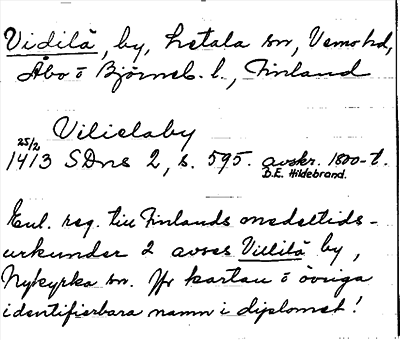 Vidilä, by, Letala sn, Vemo hd,
Åbo o Björneb. l., Finland
Vilielaby
25/2
1413 SDns 2, s. 595. avskr. 1800-t.
B.E. Hildebrand.
Enl. reg. till Finlands medeltids-
urkunder 2 avses Villilä by,
Nykyrka sn. Jfr kartan o övriga
identifierbara namn i diplomet!